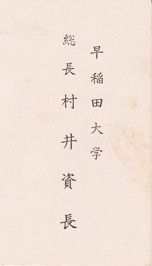 早稲田大学
総長村井資長